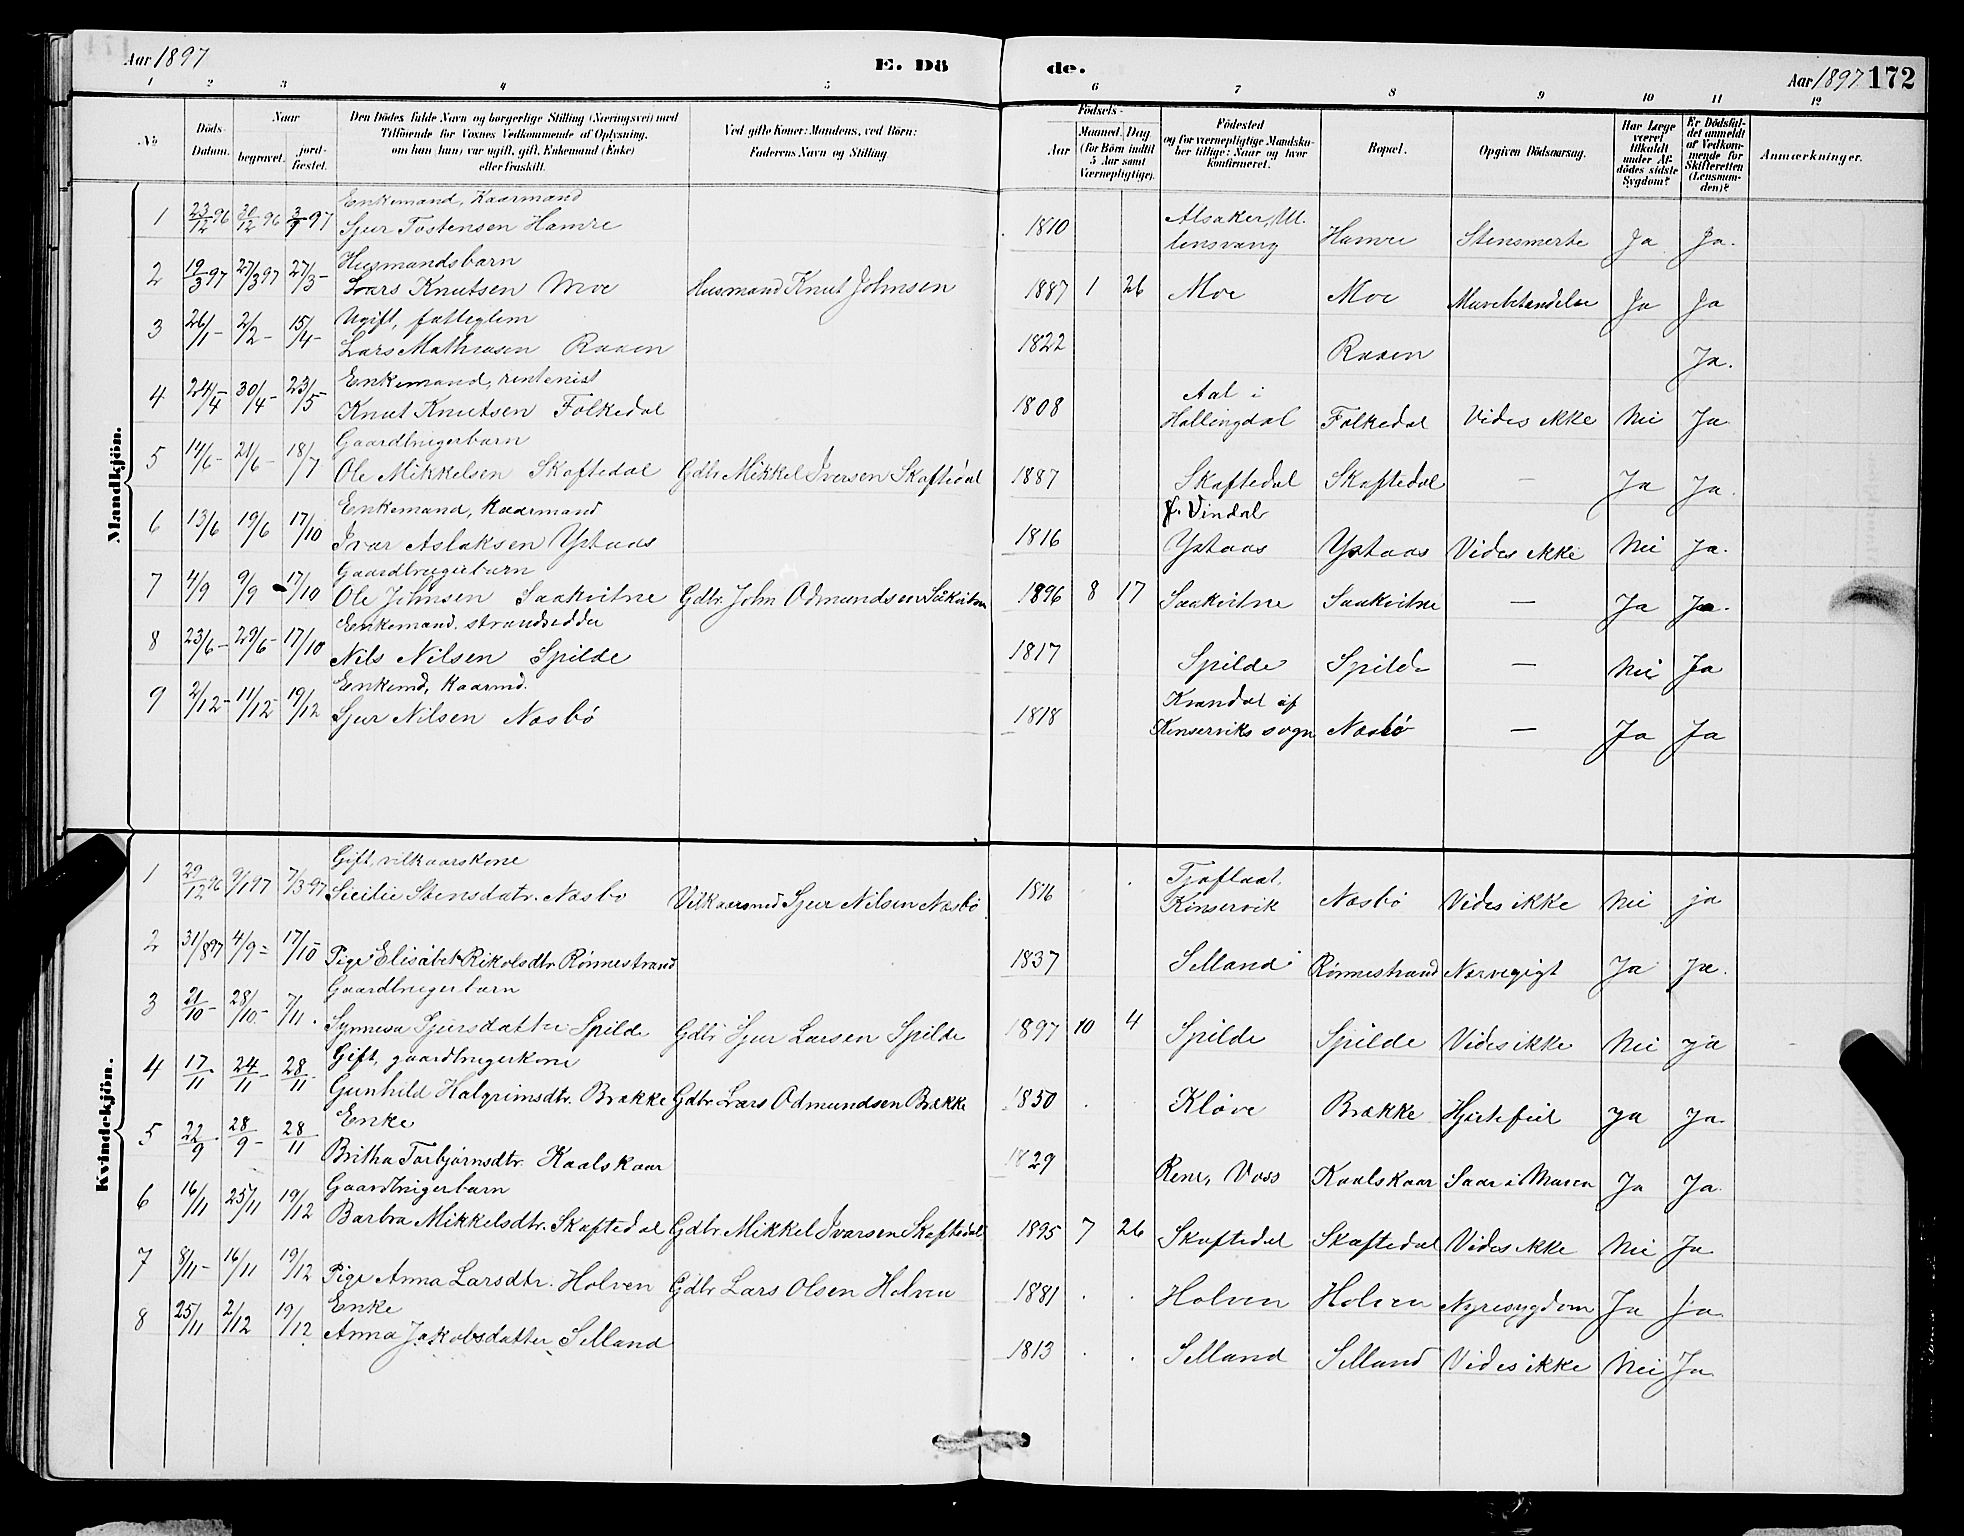 Aar 1897
E. Dö de.
Aar 1897 172
1 2 3 4 5 6 7 8 9 10 11 12
No
Döds-Datum.
Naar
begravet. jordfæstet.
Den Dödes fulde Navn og borgerlige Stilling (Næringsvei) med
Tilföiende for Voxnes Vedkommende af Oplysning,
om han (hun) var ugift, gift, Enkemand (Enke)
eller fraskilt.
Ved gifte Koner: Mandens, ved Börn:
Faderens Navn og Stilling
Födsels-
Aar
Maaned. Dag
(for Börn indtil
5 Aar samt
Værnepligtige).
Födested
og for værnepligtige Mandskaber tillige: Naar og hvor
konfirmeret.
Bopæl.
Opgiven Dödsaarsag.
Har Læge
været
tilkaldt
under Afdödes sidste
Sygdom?
Er Dödsfaldet anmeldt
af Vedkommende for
Skifteretten
(Lensmanden)?
Anmærkninger.
Mandkjön.
Enkemand, Kaarmand
1 23/12 96 30/12 96 97 Sjur Tostensen Hamre 1810 Alsaker, Ullensvang Hamre Stensmerte Ja Ja.
Husmandsbarn
2 19/3 97 27/3 97 27/3 - Lars Knutsen Moe Husmand Knut Johnsen 1887 1 26 Moe Moe Mavebetændelse Ja Ja
Ugift, fattiglem
3 26/1 - 2/2 - 15/4 - Lars Mathiasen Raaen 1822 Raaen Ja.
Enkemand, rentenist
4 24/4 - 30/4 - 23/5 - Knut Knutsen Folkedal 1808 Aal i Hallingdal Folkedal Vides ikke Nei Ja
Gaardbrugerbarn
5 14/6 - 21/6 - 18/7 Ole Mikkelsen Skaftedal Gdbr Mikkel Iversen Skaftedal 1887 Skaftedal Skaftedal — Ja Ja.
Enkemand, kaarmand
6 13/6 19/6 17/10 Ivar Aslaksen Ystaas 1816 Vindal Ystaas Ystaas Vides ikke Nei Ja.
Gaardbrugerbarn
7 4/9 9/9 17/10 Ole Johnsen Saakvitne Gdbr. John Odmundsen Såkvitne 1896 8 17 Saakvitne Saakvitne — Ja Ja.
Enkemand. strandsidder
8 23/6 - 29/6 - 17/10 Nils Nilsen Spilde 1817 Spilde Spilde — Nei Ja
Enkemd, kaarmd.
9 2/12 - 11/12 - 19/12 Sjur Nilsen Næsbø 1818 Kvandal af Kinserviks sogn Næsbø — Ja Ja
Kvindekjön.
Gift, vilkaarskone
1 29/12 96 9/1 97 7/3 97 Sicilie Stensdatr. Næsbø Vilkaarsmd Sjur Nilsen Næsbø 1816 Tjoflaat, Kinservik Næsbø Vides ikke Nei ja
2 31/8 97 4/9 = 17/10 Pige Elisabet Rikolsdtr Rønnestrand 1837 Selland Rønnestrand Nervegigt Ja ja.
Gaardbrugerbarn
3 21/10 - 28/10 - 7/11. Synneva Sjursdatter Spilde Gdbr Sjur Larsen Spilde 1897 10 4 Spilde Spilde Vides ikke Nei ja
Gift, gaardbrugerkone
4 17/11 - 24/11 - 28/11 - Gunhild Halgrimsdtr. Brække Gdbr Lars Odmundsen Brække 1850 Kløve Brække Hjertefeil ja Ja.
Enke
5 22/9 - 28/9 - 28/11 Britha Torbjørnsdtr. Kaalskaar 1829 Rene, Voss Kaalskaar Saar i Maven Ja Ja.
Gaardbrugerbarn
6 16/11 25/11 19/12 Barbra Mikkelsdtr. Skaftedal Gdbr Mikkel Ivarsen Skaftedal 1895 7 26 Skaftedal Skaftedal Vides ikke Nei Ja
7 8/11 - 16/11 19/12 Pige Anna Larsdtr. Holven Gdbr Lars Olsen Holven 1881 Holven Holven Nyresygdom Ja Ja
Enke
8 25/11 2/12 19/12 Anna Jakobsdatter Selland 1813 Selland Selland Vides ikke Nei Ja